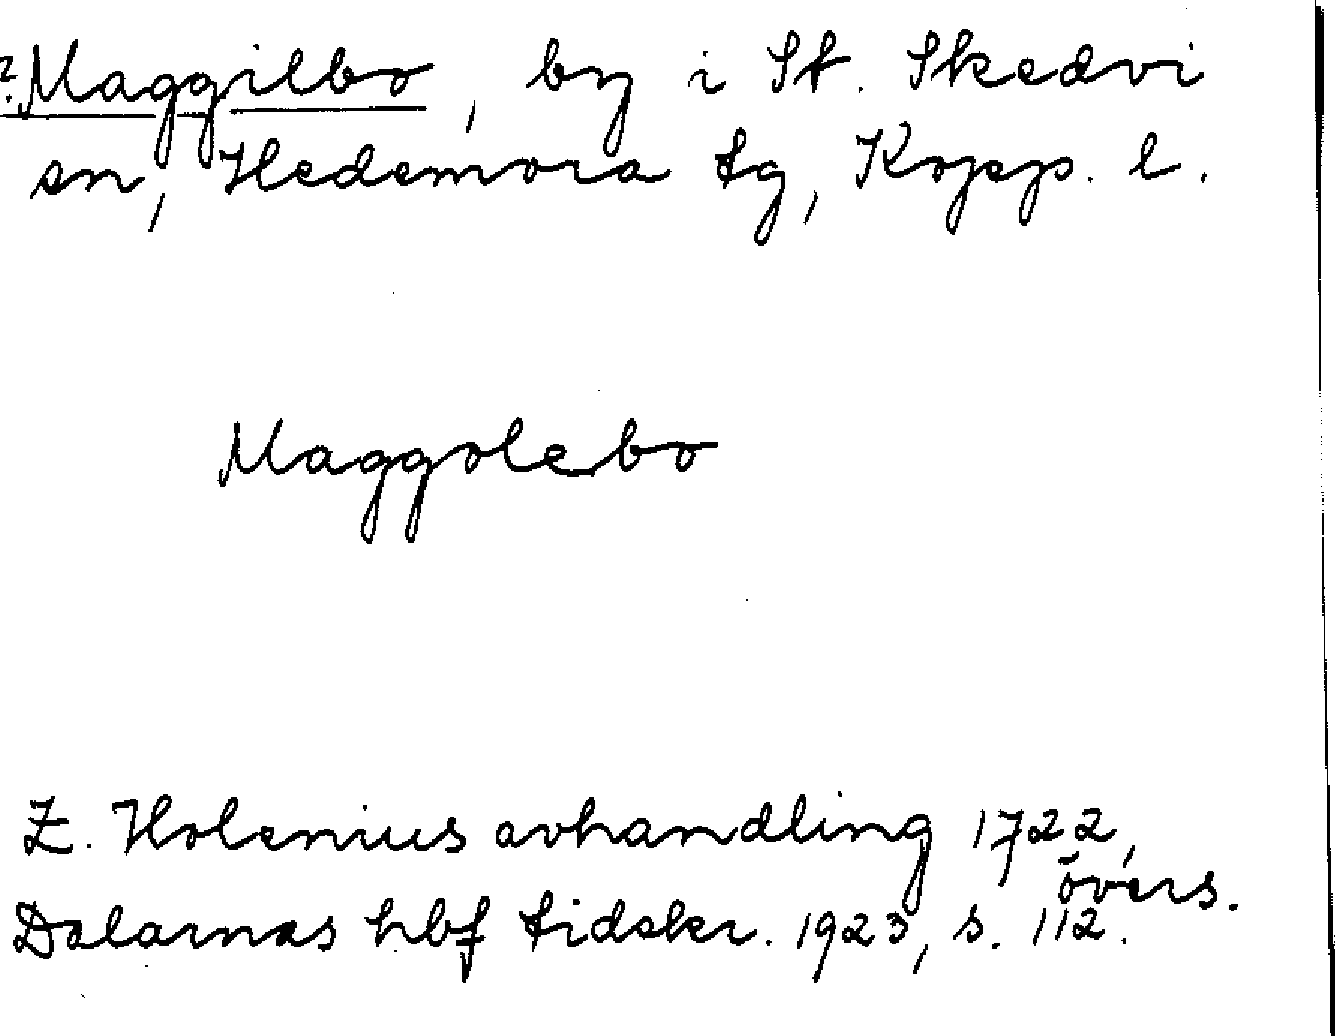 ?Maggilbo, by i St. Skedvi
sn, Hedemora tg, Kopp. l.
Maggolebo
Z. Holenius avhandling 1722,
övers.
Dalarnas hbf tidskr. 1923, s. 112.